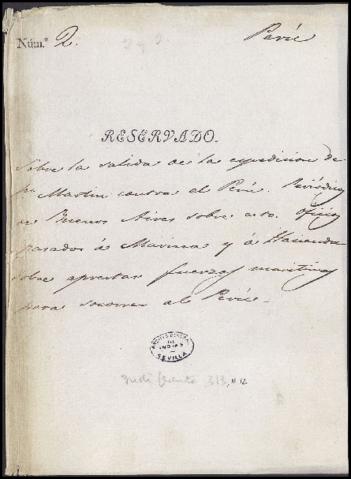 Núm.º 2.
Perú
RESERVADO.
Sobre la salida de la expedicion de
Sn. Martin contra el Perú. Periódico
de Buenos Aires sobre esto. Oficios
pasados á Marina y á Hacienda
sobre aprestar fuerzas maritimas
para socorrer al Perú.
ARCHIVO GENERAL
DE
INDIAS
SEVILLA
Indiferente 313, n 12